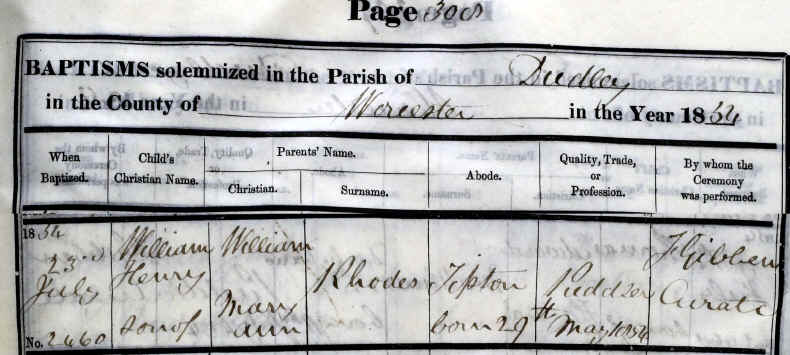 Page 308
BAPTISMS solemnized in the Parish of Dudley
in the County of Worcester in the Year 1854
When Baptized.
Child's Christian Name.
Parents' Name.
Christian.
Surname.
Abode.
Quality, Trade, or Profession.
By whom the Ceremony was performed.
1854
23rd
July
No. 2460
William
Henry
son of
William
Mary
ann
Rhodes
Tipton
born 29th May 1854
Puddler
Curate